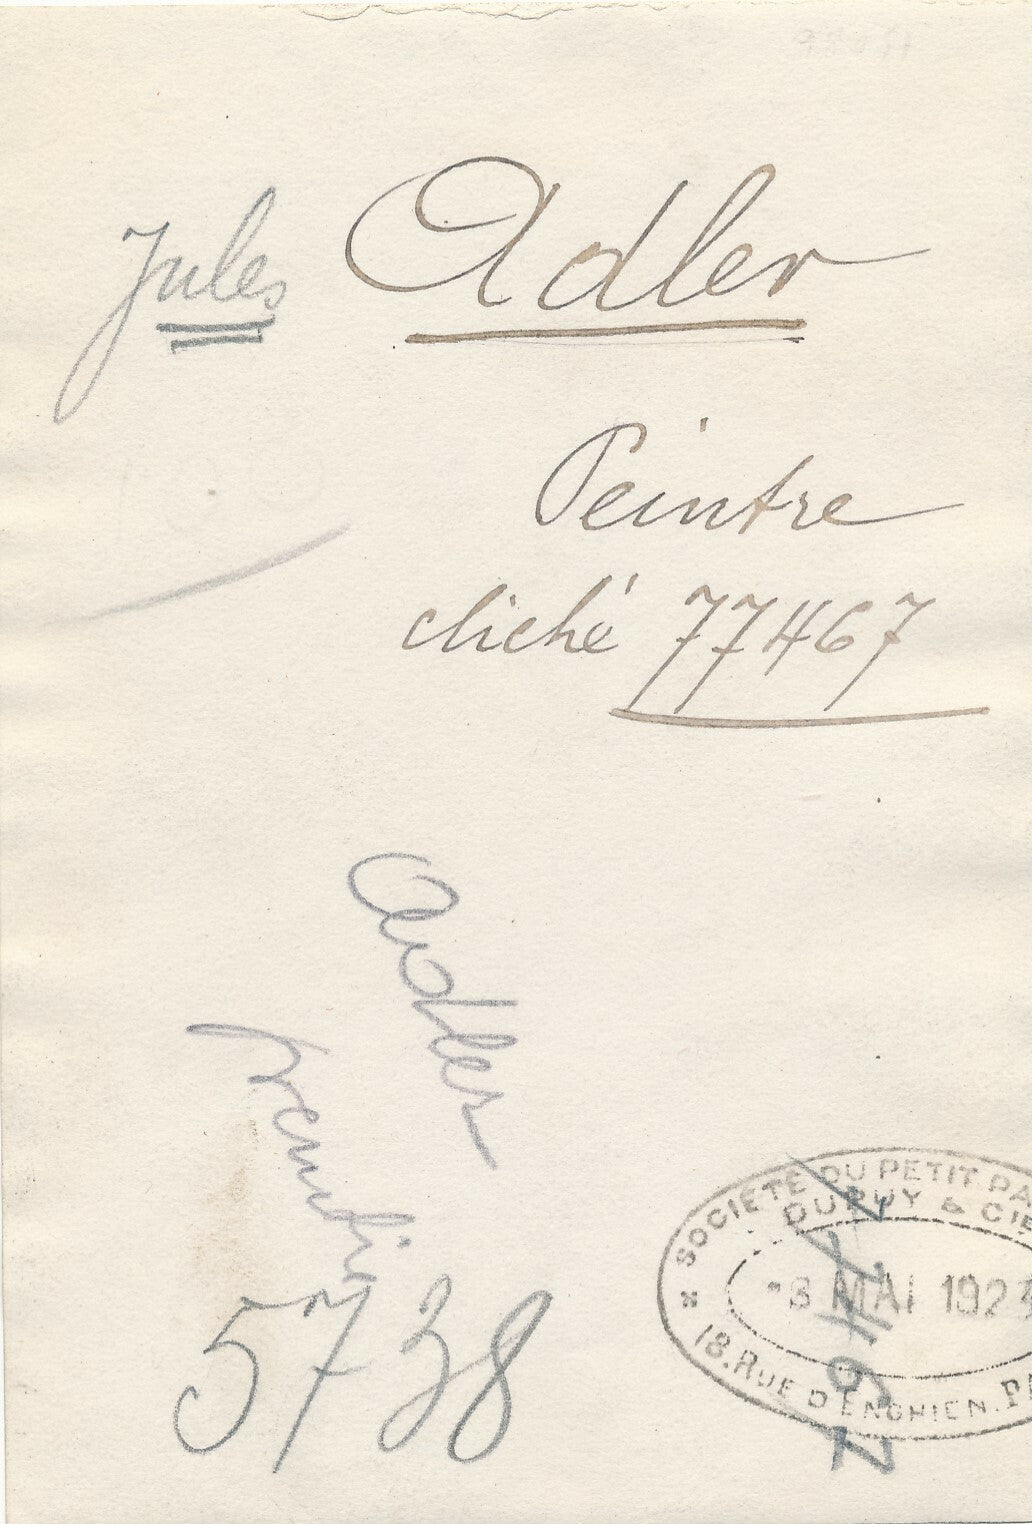 Jules Adler
Peintre
cliché 77467
Adler
peintre
5738
SOCIÉTÉ DU PETIT PA
DUPUY & CIE
8 MAI 192
18. RUE D'ENGHIEN. P
77467